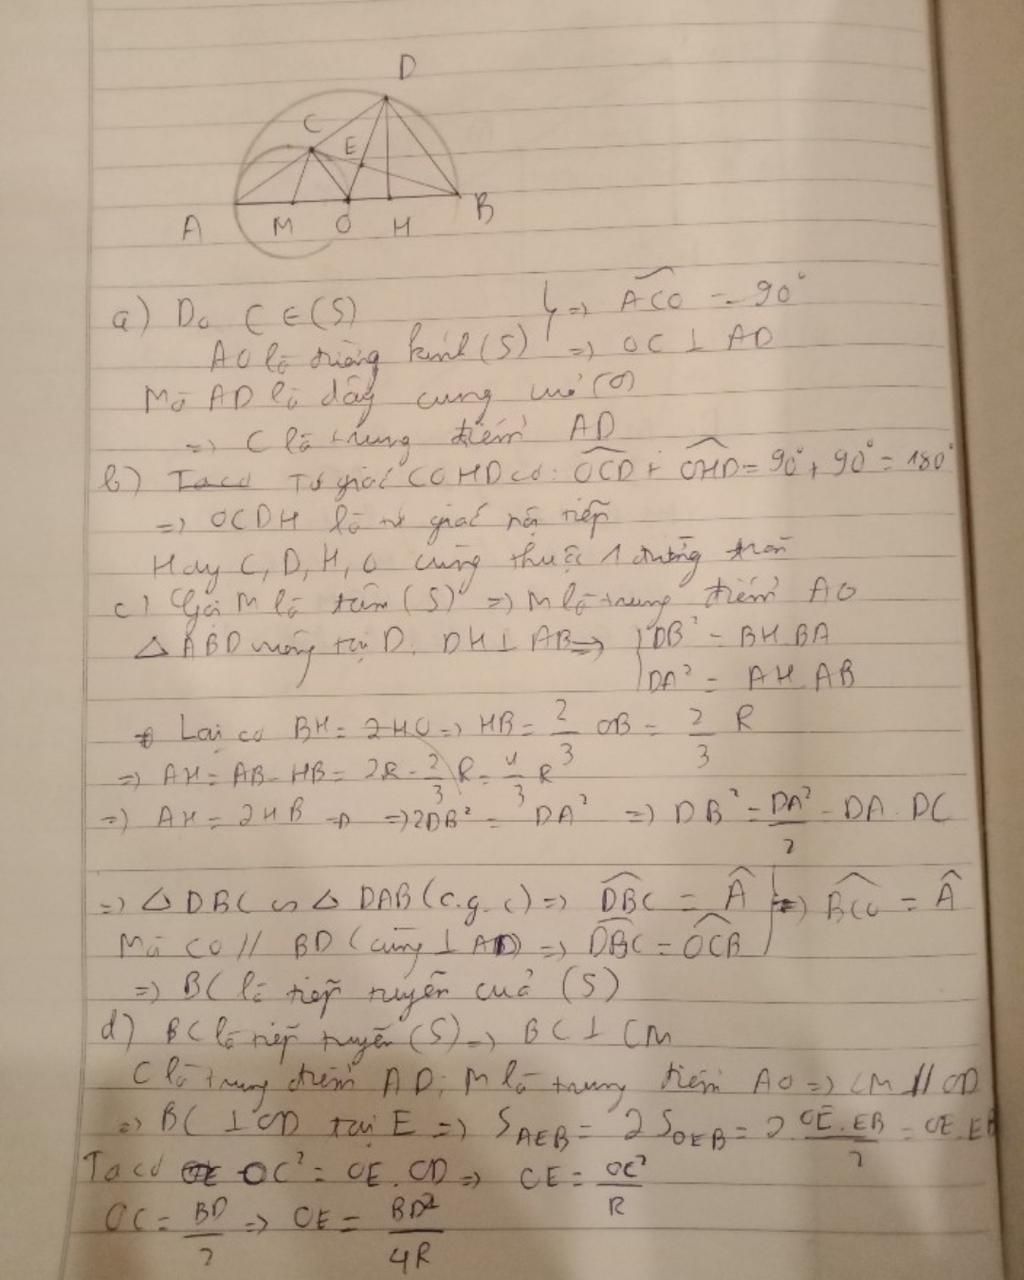 D
C
E
A M O H B
a) Do C ∈ (S)
AO là đường kính (S) } => \widehat{ACO} = 90°
=> OC ⊥ AD
Mà AD là dây cung của (O)
=> C là trung điểm AD
b) Ta có Tứ giác COHD có: \widehat{OCD} + \widehat{OHD} = 90° + 90° = 180°
=> OCDH là tứ giác nội tiếp
Hay C, D, H, O cùng thuộc 1 đường tròn
c) Gọi M là tâm (S) => M là trung điểm AO
△ ABD vuông tại D, DH ⊥ AB => { DB² = BH.BA
DA² = AH.AB
Lại có BH = 2HO => HB = 2/3 OB = 2/3 R
=> AH = AB - HB = 2R - 2/3 R = 4/3 R
=> AH = 2HB => 2DB² = DA² => DB² = DA²/2 = DA.DC
=> △ DBC ∽ △ DAB (c.g.c) => \widehat{DBC} = \widehat{A} } => \widehat{BCO} = \widehat{A}
Mà CO // BD (cùng ⊥ AD) => \widehat{DBC} = \widehat{OCB}
=> BC là tiếp tuyến của (S)
d) BC là tiếp tuyến (S) => BC ⊥ CM
C là trung điểm AD, M là trung điểm AO => CM // OD
=> BC ⊥ OD tại E => S_{AEB} = 2S_{OEB} = 2 OE.EB/2 = OE.EB
Ta có OC² = OE.OD => OE = OC²/R
OC = BD/2 => OE = BD²/4R